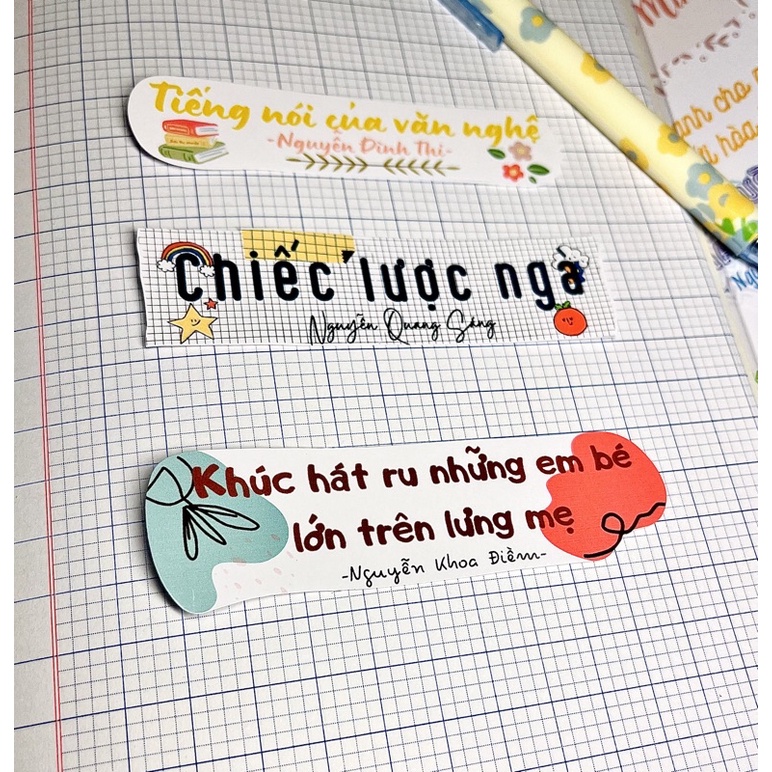 Tiếng nói của văn nghệ
-Nguyễn Đình Thi-
Chiếc lược ngà
Nguyễn Quang Sáng
Khúc hát ru những em bé
lớn trên lưng mẹ
-Nguyễn Khoa Điềm-